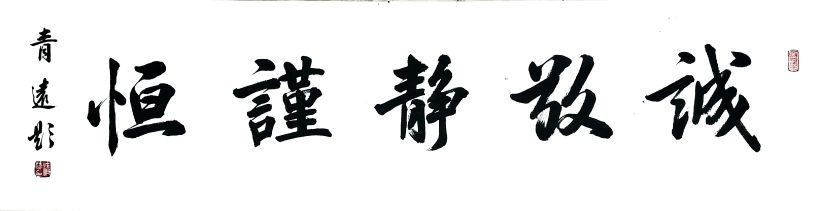 誠敬靜謹恒
青遠題